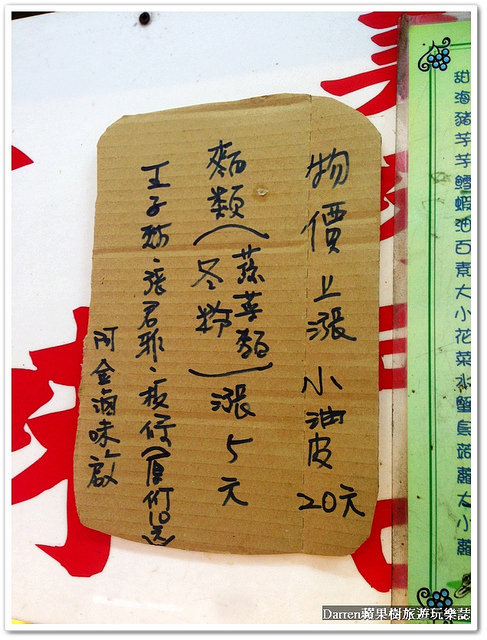 物價上漲小油皮20元
麵類(蔬菜麵
冬粉)漲5元
王子麵、張君雅、板條(原價
阿金滷味啟
甜海豬芋芋鱈蝦油百素大小花菜水蟹蘿大小蘿
Darren蘋果樹旅遊玩樂誌